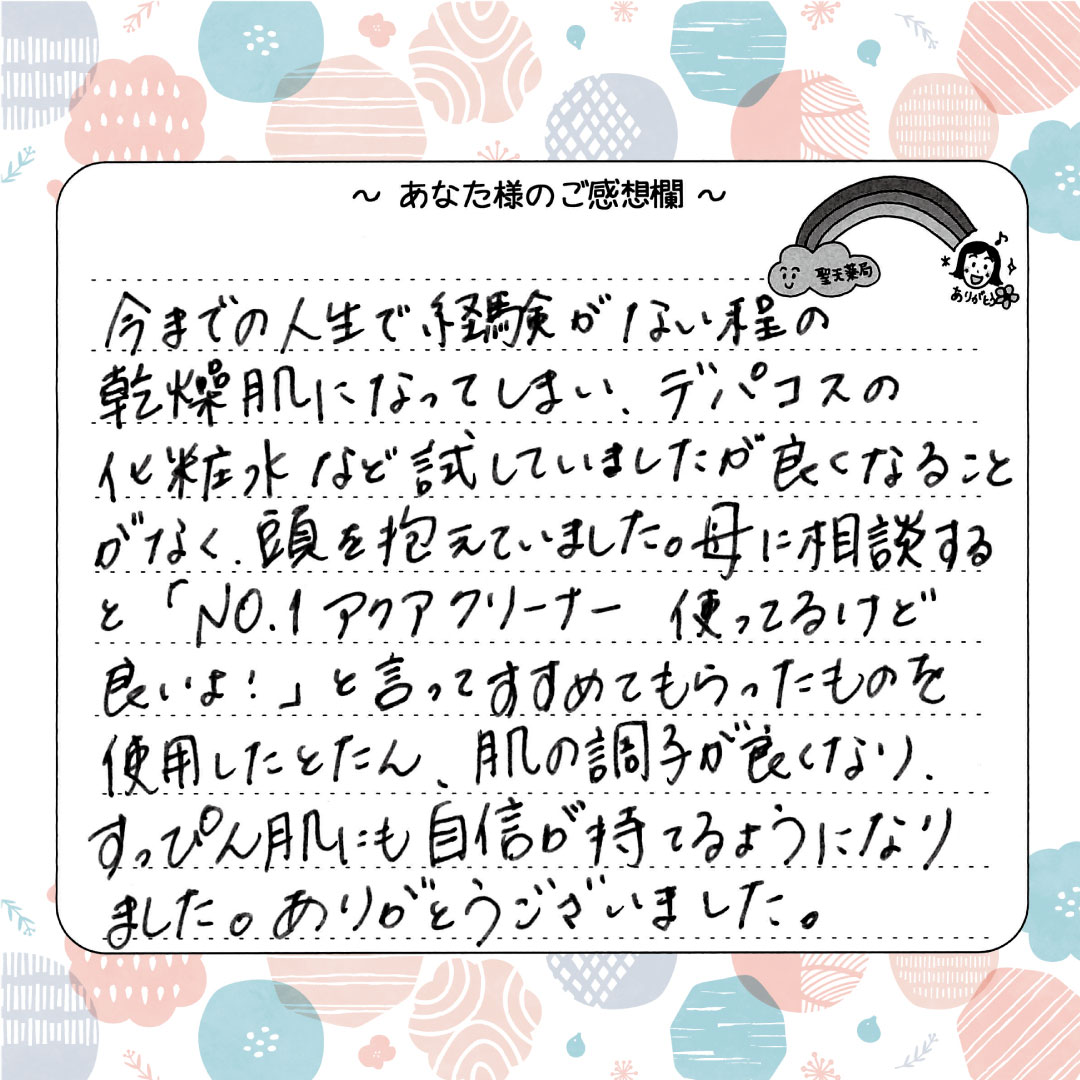 ～ あなた様のご感想欄 ～
聖天薬局
ありがとう
今までの人生で経験がない程の
乾燥肌になってしまい、デパコスの
化粧水など試していましたが良くなること
がなく、頭を抱えていました。母に相談する
と「NO.1アクアクリーナー 使ってるけど
良いよ！」と言ってすすめてもらったものを
使用したとたん、肌の調子が良くなり、
すっぴん肌にも自信が持てるようになり
ました。ありがとうございました。